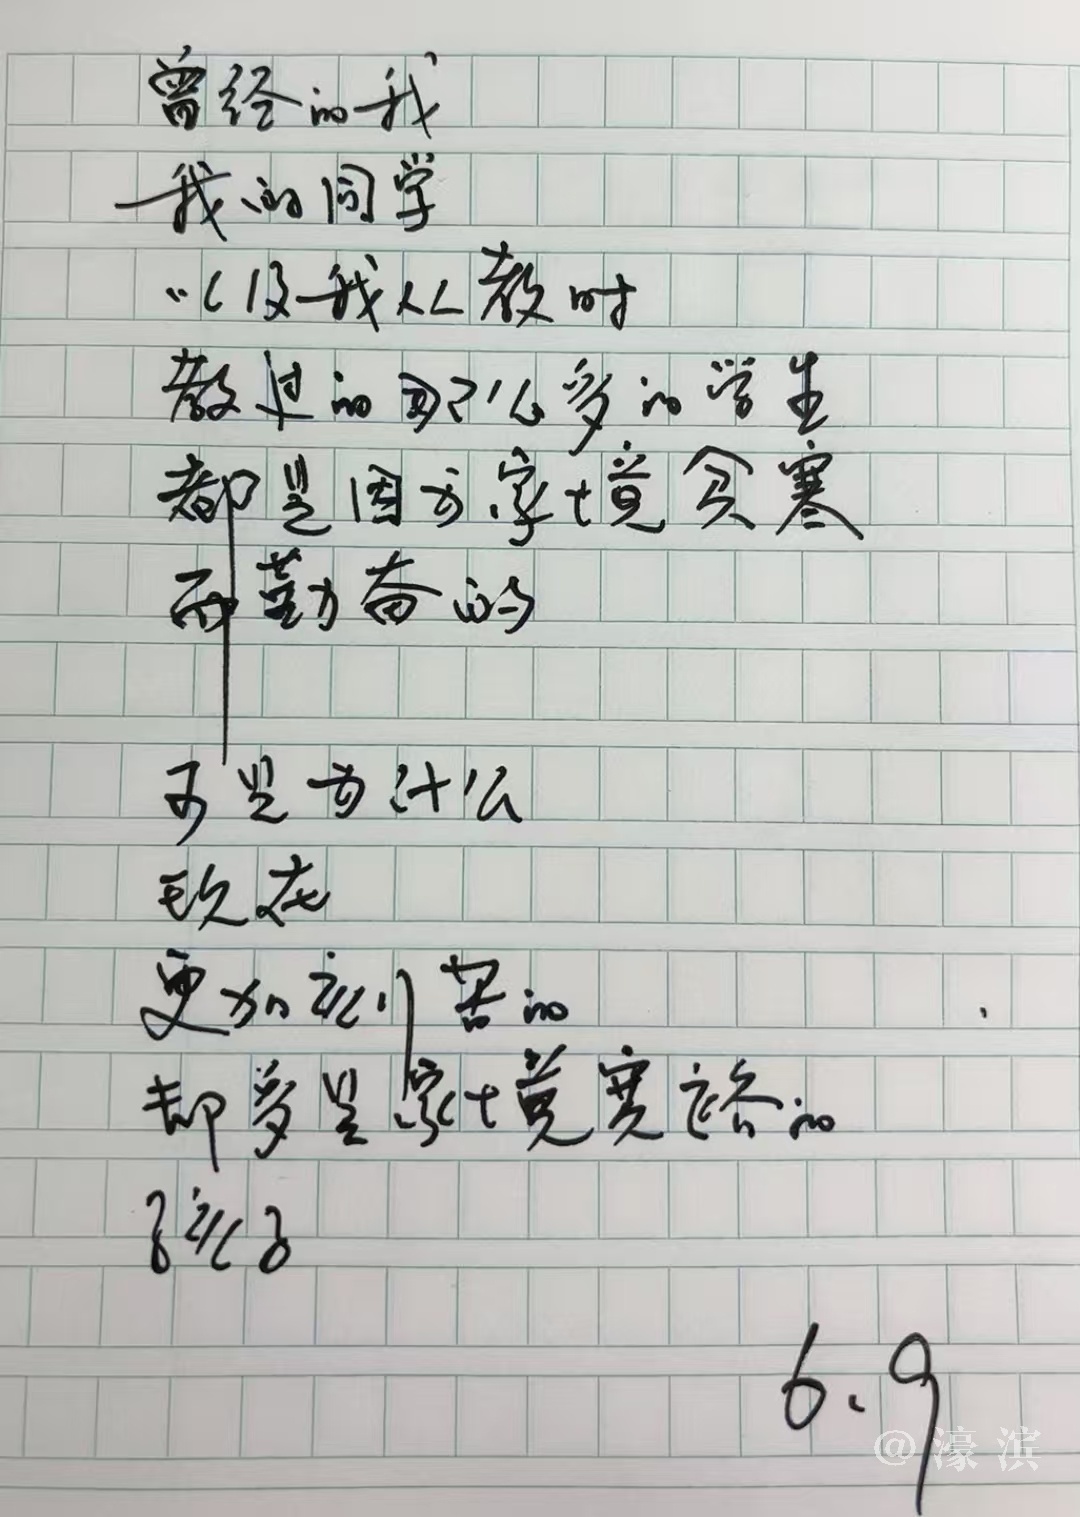 曾经的我
我的同学
以及我从教时
教过的那么多的学生
都是因为家境贫寒
而勤奋的
可是为什么
现在
更加刻苦的
却多是家境宽裕的
孩子
6.9
@濠滨